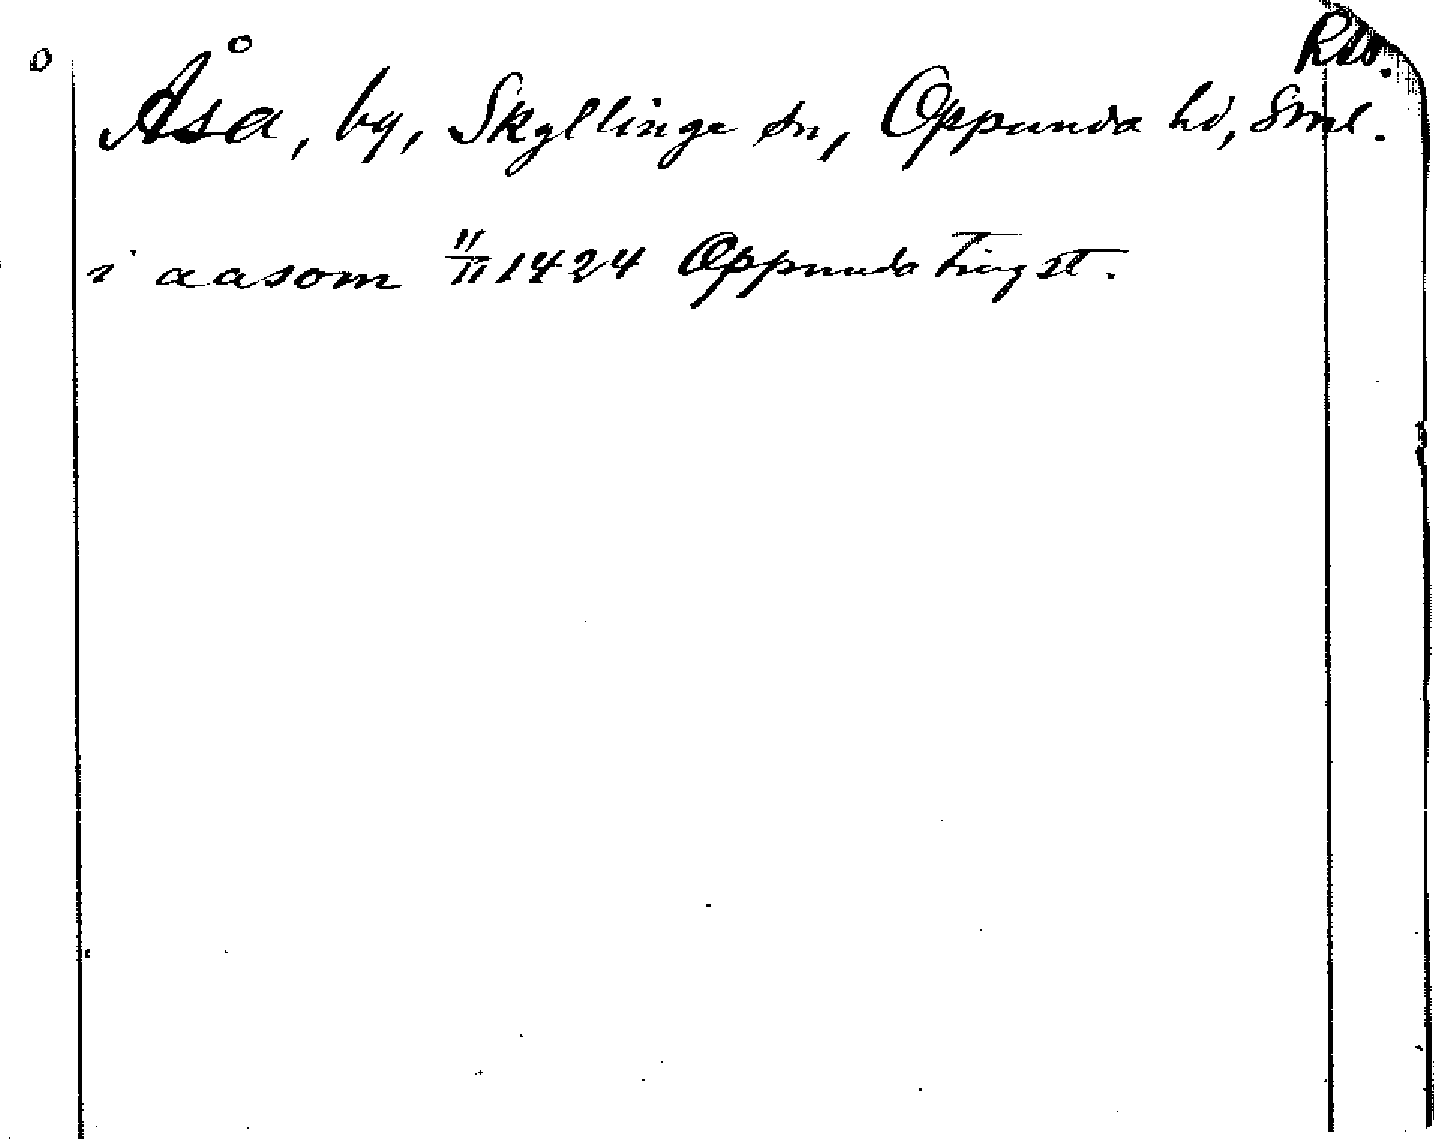 Rso.
Åsa, by, Skyllinge sn, Oppunda hd, Sml.
i aasom 11/11 1424 Oppunda Tingst.